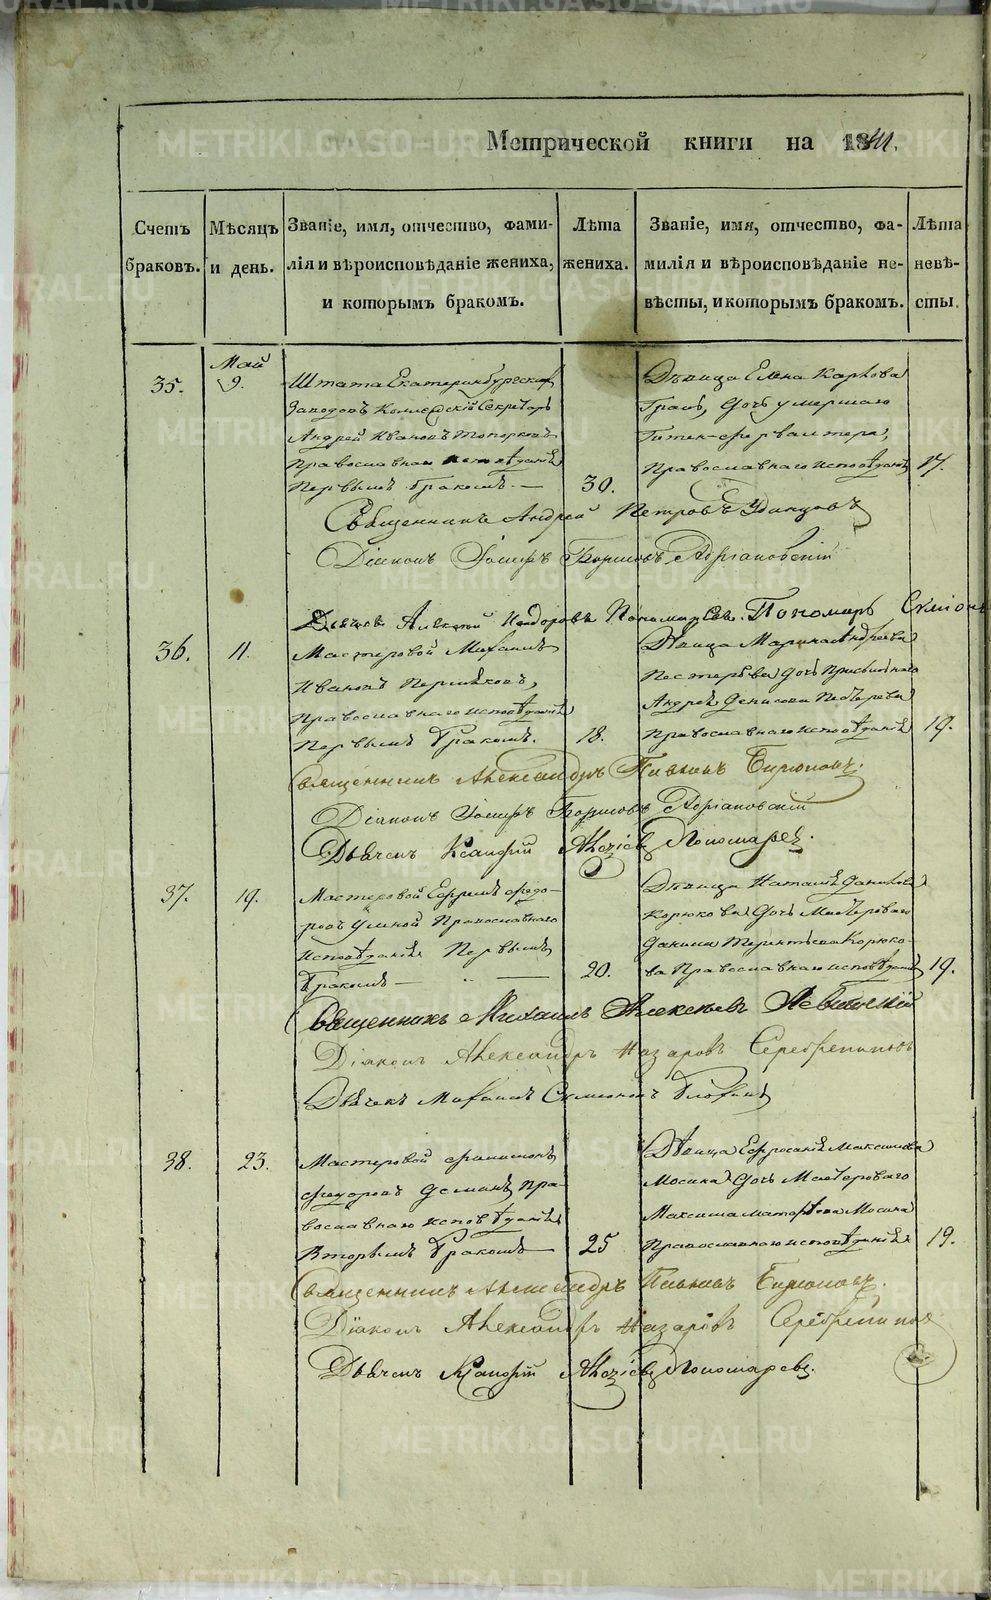 METRIKI.GASO-URAL.RU
Метрической книги на 1841.
Счетъ браковъ.
Мѣсяцъ и день.
Званіе, имя, отчество, фами-
лія и вѣроисповѣданіе жениха,
и которымъ бракомъ.
Лѣта жениха.
Званіе, имя, отчество, фа-
милія и вѣроисповѣданіе не-
вѣсты, и которымъ бракомъ.
Лѣта невѣ-
сты.
35.
Май
9.
Штата Екатеринбургскихъ
Заводовъ Коллежскій Секретарь
Андрей Ивановъ Топорковъ
Православнаго исповѣданія
Первымъ бракомъ.
30.
Дѣвица Елена Карлова
Грамъ, дочь умершаго
Гитен-фервалтера,
Православнаго исповѣданія
17.
Священникъ Андрей Петровъ Удинцовъ
Діаконъ Іосифъ Борисовъ Адріановскій
Дьячекъ Алексѣй Пономаревъ. Пономарь
36.
11.
Мастеровой Михаилъ
Ивановъ Пермяковъ,
Православнаго исповѣданія
Первымъ бракомъ.
18.
Дѣвица Марина Андреева
Пестерева дочь
Андрея Денисова Пестерева
Православнаго исповѣданія
19.
Священникъ Александръ Павловъ Бирюковъ.
Діаконъ Іосифъ Борисовъ Адріановскій
Дьячекъ Ксанфій Пономаревъ.
37.
19.
Мастеровой Ефимъ Федо-
ровъ Православнаго
исповѣданія Первымъ
Бракомъ
20.
Дѣвица Наталья Данилова
Корюкова дочь Мастероваго
Данила Терентьева Корюко-
ва Православнаго исповѣданія
19.
Священникъ Михаилъ Алексѣевъ Левитскій
Діаконъ Александръ Назаровъ Серебренниковъ
Дьячекъ Михаилъ Симеоновъ
38.
23.
Мастеровой Филимонъ
Федоровъ Деминъ Пра-
вославнаго исповѣданія
Вторымъ бракомъ
25
Дѣвица Ефросинія Максимова
Мосина дочь Мастероваго
Максима Матвѣева Мосина
Православнаго исповѣданія
19.
Священникъ Александръ Павловъ Бирюковъ.
Діаконъ Александръ Назаровъ Серебренниковъ
Дьячекъ Ксанфій Пономаревъ.